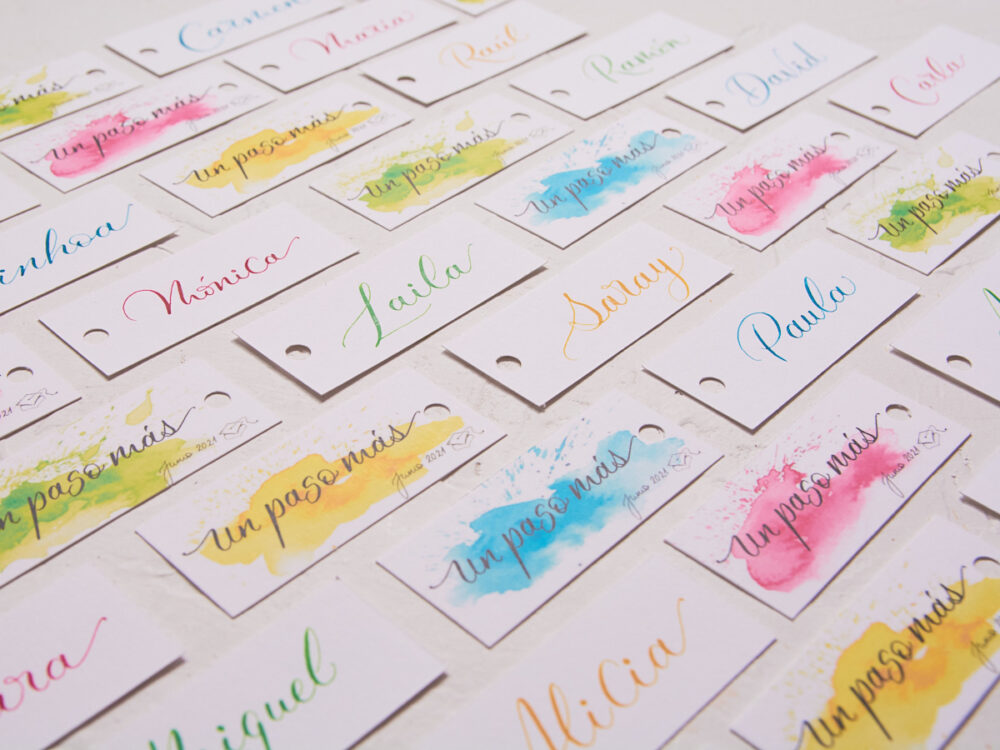 Carmen
Maria
Raúl
Ramón
David
Carla
más
Un paso más
Un paso más
Un paso más
Un paso más
Un paso más
Un paso más
inhoa
Mónica
Laila
Saray
Paula
2021
Un paso más
Junio 2021
Un paso más
Junio 2021
Un paso más
Junio 2021
Un paso más
Junio 2021
ara
Miguel
Alicia
Un paso más
Junio